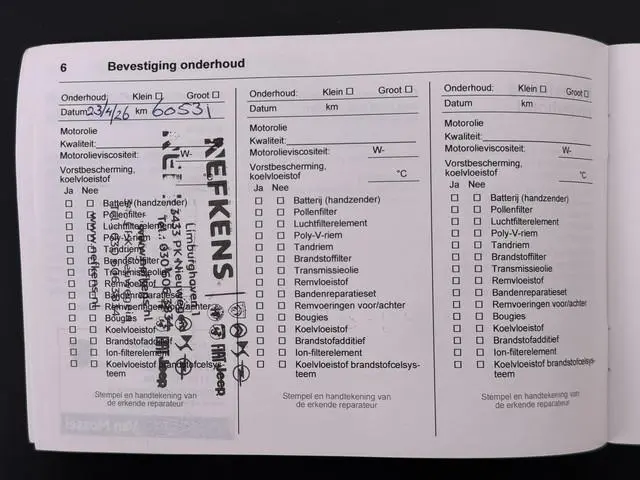 6 Bevestiging onderhoud
Onderhoud: Klein ☐ Groot ☐
Datum 23/4/26 km 60531
Motorolie
Kwaliteit:
Motorolieviscositeit: W-
Vorstbescherming,
koelvloeistof
Ja Nee
☐ ☐ Batterij (handzender)
☐ ☐ Pollenfilter
☐ ☐ Luchtfilterelement
☐ ☐ Poly-V-riem
☐ ☐ Tandriem
☐ ☐ Brandstoffilter
☐ ☐ Transmissieolie
☐ ☐ Remvloeistof
☐ ☐ Bandenreparatieset
☐ ☐ Remvoeringen voor/achter
☐ ☐ Bougies
☐ ☐ Koelvloeistof
☐ ☐ Brandstofadditief
☐ ☐ Ion-filterelement
☐ ☐ Koelvloeistof brandstofcelsys-
teem
Stempel en handtekening van
de erkende reparateur
NEFKENS
Limburghaven
3433 PK Nieuwegein
www.nefkens.nl
Jeep
Onderhoud: Klein ☐ Groot ☐
Datum km
Motorolie
Kwaliteit:
Motorolieviscositeit: W-
Vorstbescherming,
koelvloeistof °C
Ja Nee
☐ ☐ Batterij (handzender)
☐ ☐ Pollenfilter
☐ ☐ Luchtfilterelement
☐ ☐ Poly-V-riem
☐ ☐ Tandriem
☐ ☐ Brandstoffilter
☐ ☐ Transmissieolie
☐ ☐ Remvloeistof
☐ ☐ Bandenreparatieset
☐ ☐ Remvoeringen voor/achter
☐ ☐ Bougies
☐ ☐ Koelvloeistof
☐ ☐ Brandstofadditief
☐ ☐ Ion-filterelement
☐ ☐ Koelvloeistof brandstofcelsys-
teem
Stempel en handtekening van
de erkende reparateur
Onderhoud: Klein ☐ Groot ☐
Datum km
Motorolie
Kwaliteit:
Motorolieviscositeit: W-
Vorstbescherming,
koelvloeistof °C
Ja Nee
☐ ☐ Batterij (handzender)
☐ ☐ Pollenfilter
☐ ☐ Luchtfilterelement
☐ ☐ Poly-V-riem
☐ ☐ Tandriem
☐ ☐ Brandstoffilter
☐ ☐ Transmissieolie
☐ ☐ Remvloeistof
☐ ☐ Bandenreparatieset
☐ ☐ Remvoeringen voor/achter
☐ ☐ Bougies
☐ ☐ Koelvloeistof
☐ ☐ Brandstofadditief
☐ ☐ Ion-filterelement
☐ ☐ Koelvloeistof brandstofcelsys-
teem
Stempel en handtekening van
de erkende reparateur